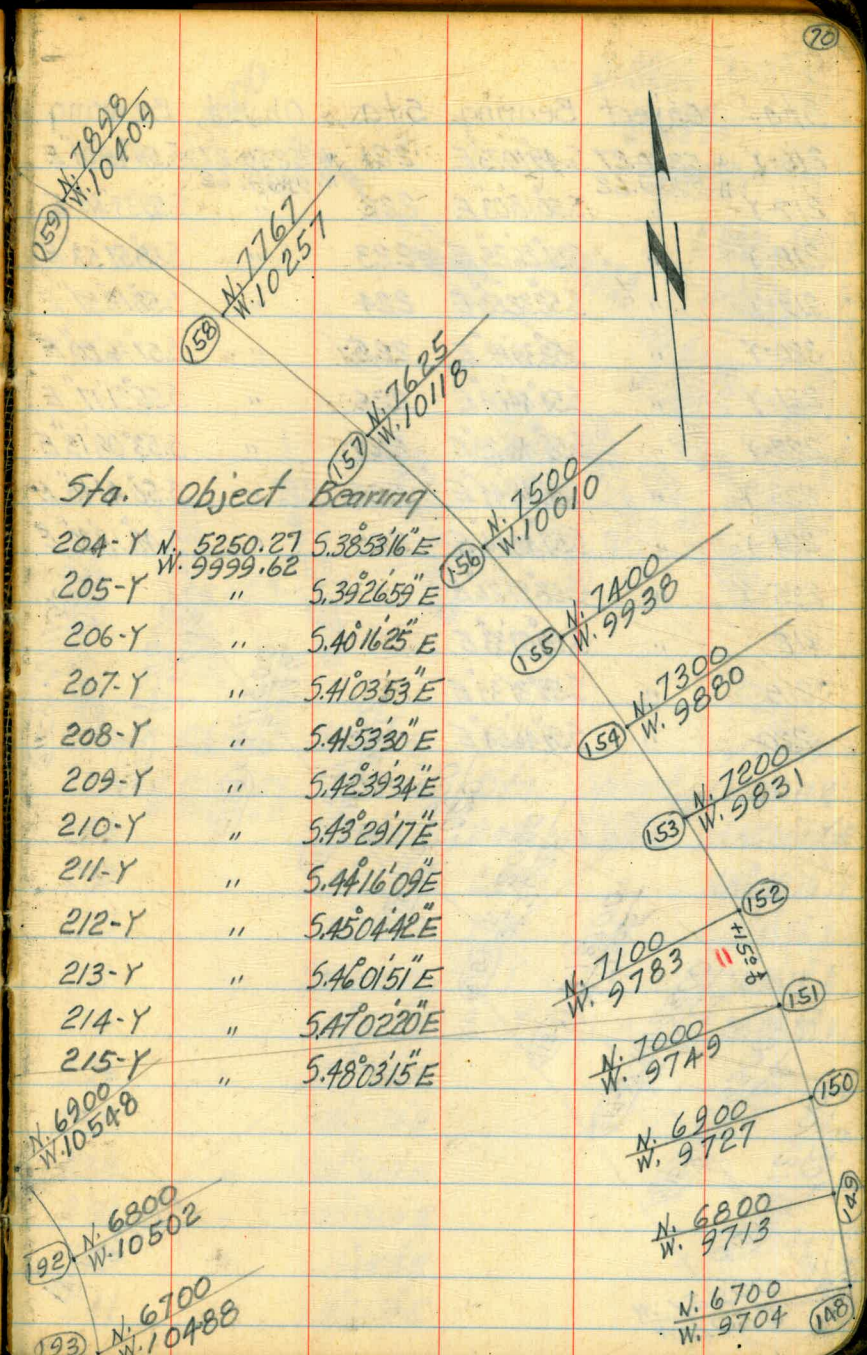 70
N. 7898
W. 10409
159
N. 7767
W. 10257
158
N
N. 7625
W. 10118
157
N. 7500
W. 10010
156
N. 7400
W. 9938
155
N. 7300
W. 9880
154
N. 7200
W. 9831
153
152
N. 7100
W. 9783
151
N. 7000
W. 9749
150
N. 6900
W. 9727
149
N. 6800
W. 9713
148
N. 6700
W. 9704
Sta. Object Bearing
204-Y N. 5250.27 S.38°53'16"E
W. 9999.62
205-Y " S.39°26'59"E
206-Y " S.40°16'25"E
207-Y " S.41°03'53"E
208-Y " S.41°53'30"E
209-Y " S.42°39'34"E
210-Y " S.43°29'17"E
211-Y " S.44°16'09"E
212-Y " S.45°04'42"E
213-Y " S.46°01'51"E
214-Y " S.47°02'20"E
215-Y " S.48°03'15"E
N. 6900
W. 10548
192
N. 6800
W. 10502
193
N. 6700
W. 10488